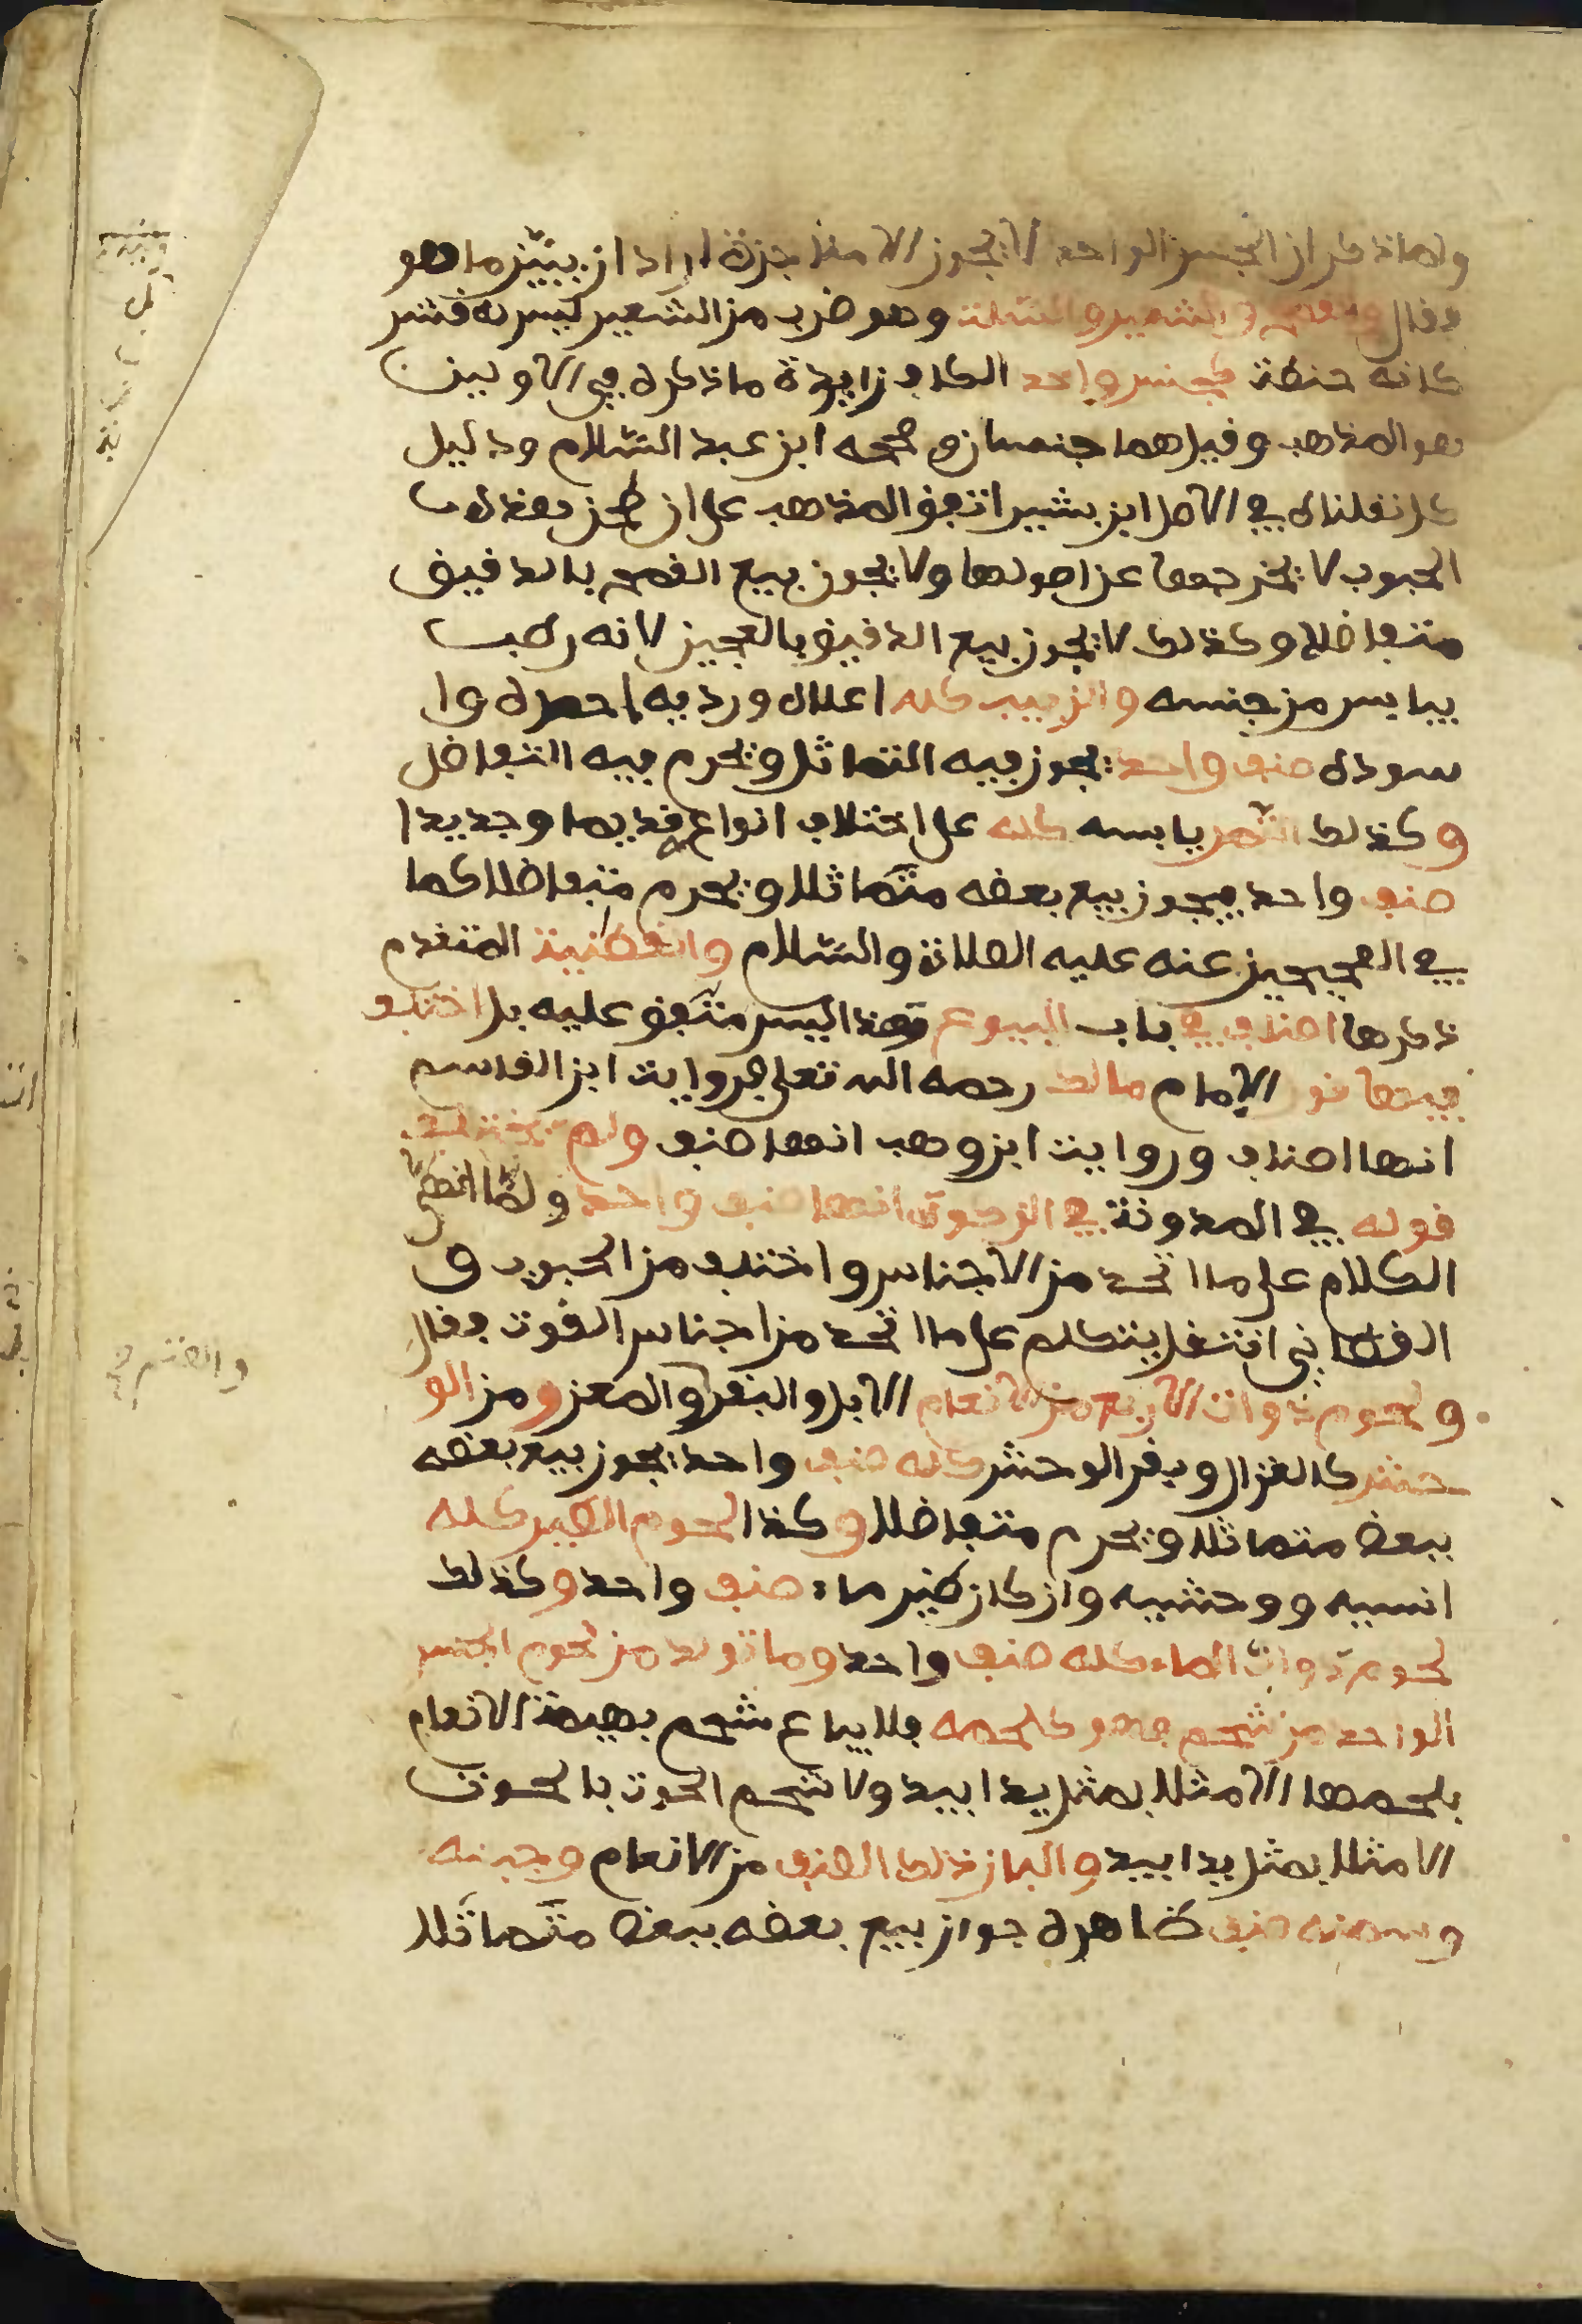 ولما ذكر ان الجنس الواحد لا يجوز الا مناجزة اراد ان يبيّن ما هو
فقال والقمح والشعير والسّلت وهو ضرب من الشعير ليس له قشر
كانه حنطة كجنس واحد الكاف زايدة ما ذكره في الاولين
هو المذهب وقيل هما جنسان وصححه ابن عبد السّلام ودليل
كل نقلناه في الاصل ابن بشير اتفق المذهب على ان طحن هذه
الحبوب لا يخرجها عن اصولها ولا يجوز بيع القمح بالدقيق
متفاضلا وكذلك لا يجوز بيع الدقيق بالعجين لانه رطب
بيابس من جنسه والزبيب كله اعلاه ورديه احمره وا
سوده صنف واحد يجوز فيه التماثل ويحرم فيه التفاضل
وكذلك التّمر يابسه كله على اختلاف انواع قديما وجديدا
صنف واحد فيجوز بيع بعضه متماثلا ويحرم متفاضلا كما
في الصحيحين عنه عليه الصلاة والسّلام والقطنية المتقدم
ذكرها اصناف في باب البيوع وهذا ليس متّفق عليه بل اختلف
فيها قول الإمام مالك رحمه الله تعلى فروايت ابن القاسم
انها اصناف وروايت ابن وهب انها صنف ولم يختلف
قوله في المدونة في الزكوة انها صنف واحد ولمّا انهى
الكلام على ما اتحد من الاجناس واختلف من الحبوب و
القطاني انتقل يتكلم على ما اتحد من اجناس القوت فقال
ولحوم ذوات الاربع من الانعام الابل والبقر والمعز ومن الو
حش كالغزال وبقر الوحش كله صنف واحد يجوز بيع بعضه
ببعض متماثلا ويحرم متفاضلا وكذا لحوم الطير كله
انسيه ووحشيه وان كان طير ماء صنف واحد وكذلك
لحوم دواب الماء كله صنف واحد وما تولد من لحوم الجنس
الواحد من شحم فهو كلحمه فلا يباع شحم بهيمة الانعام
بلحمها الا مثلا بمثل يدا بيد ولا شحم الحوت بالحوت
الا مثلا بمثل يدا بيد والبان ذلك الصنف من الانعام وجبنه
وسمنه صنف ظاهره جواز بيع بعضه ببعض متماثلا